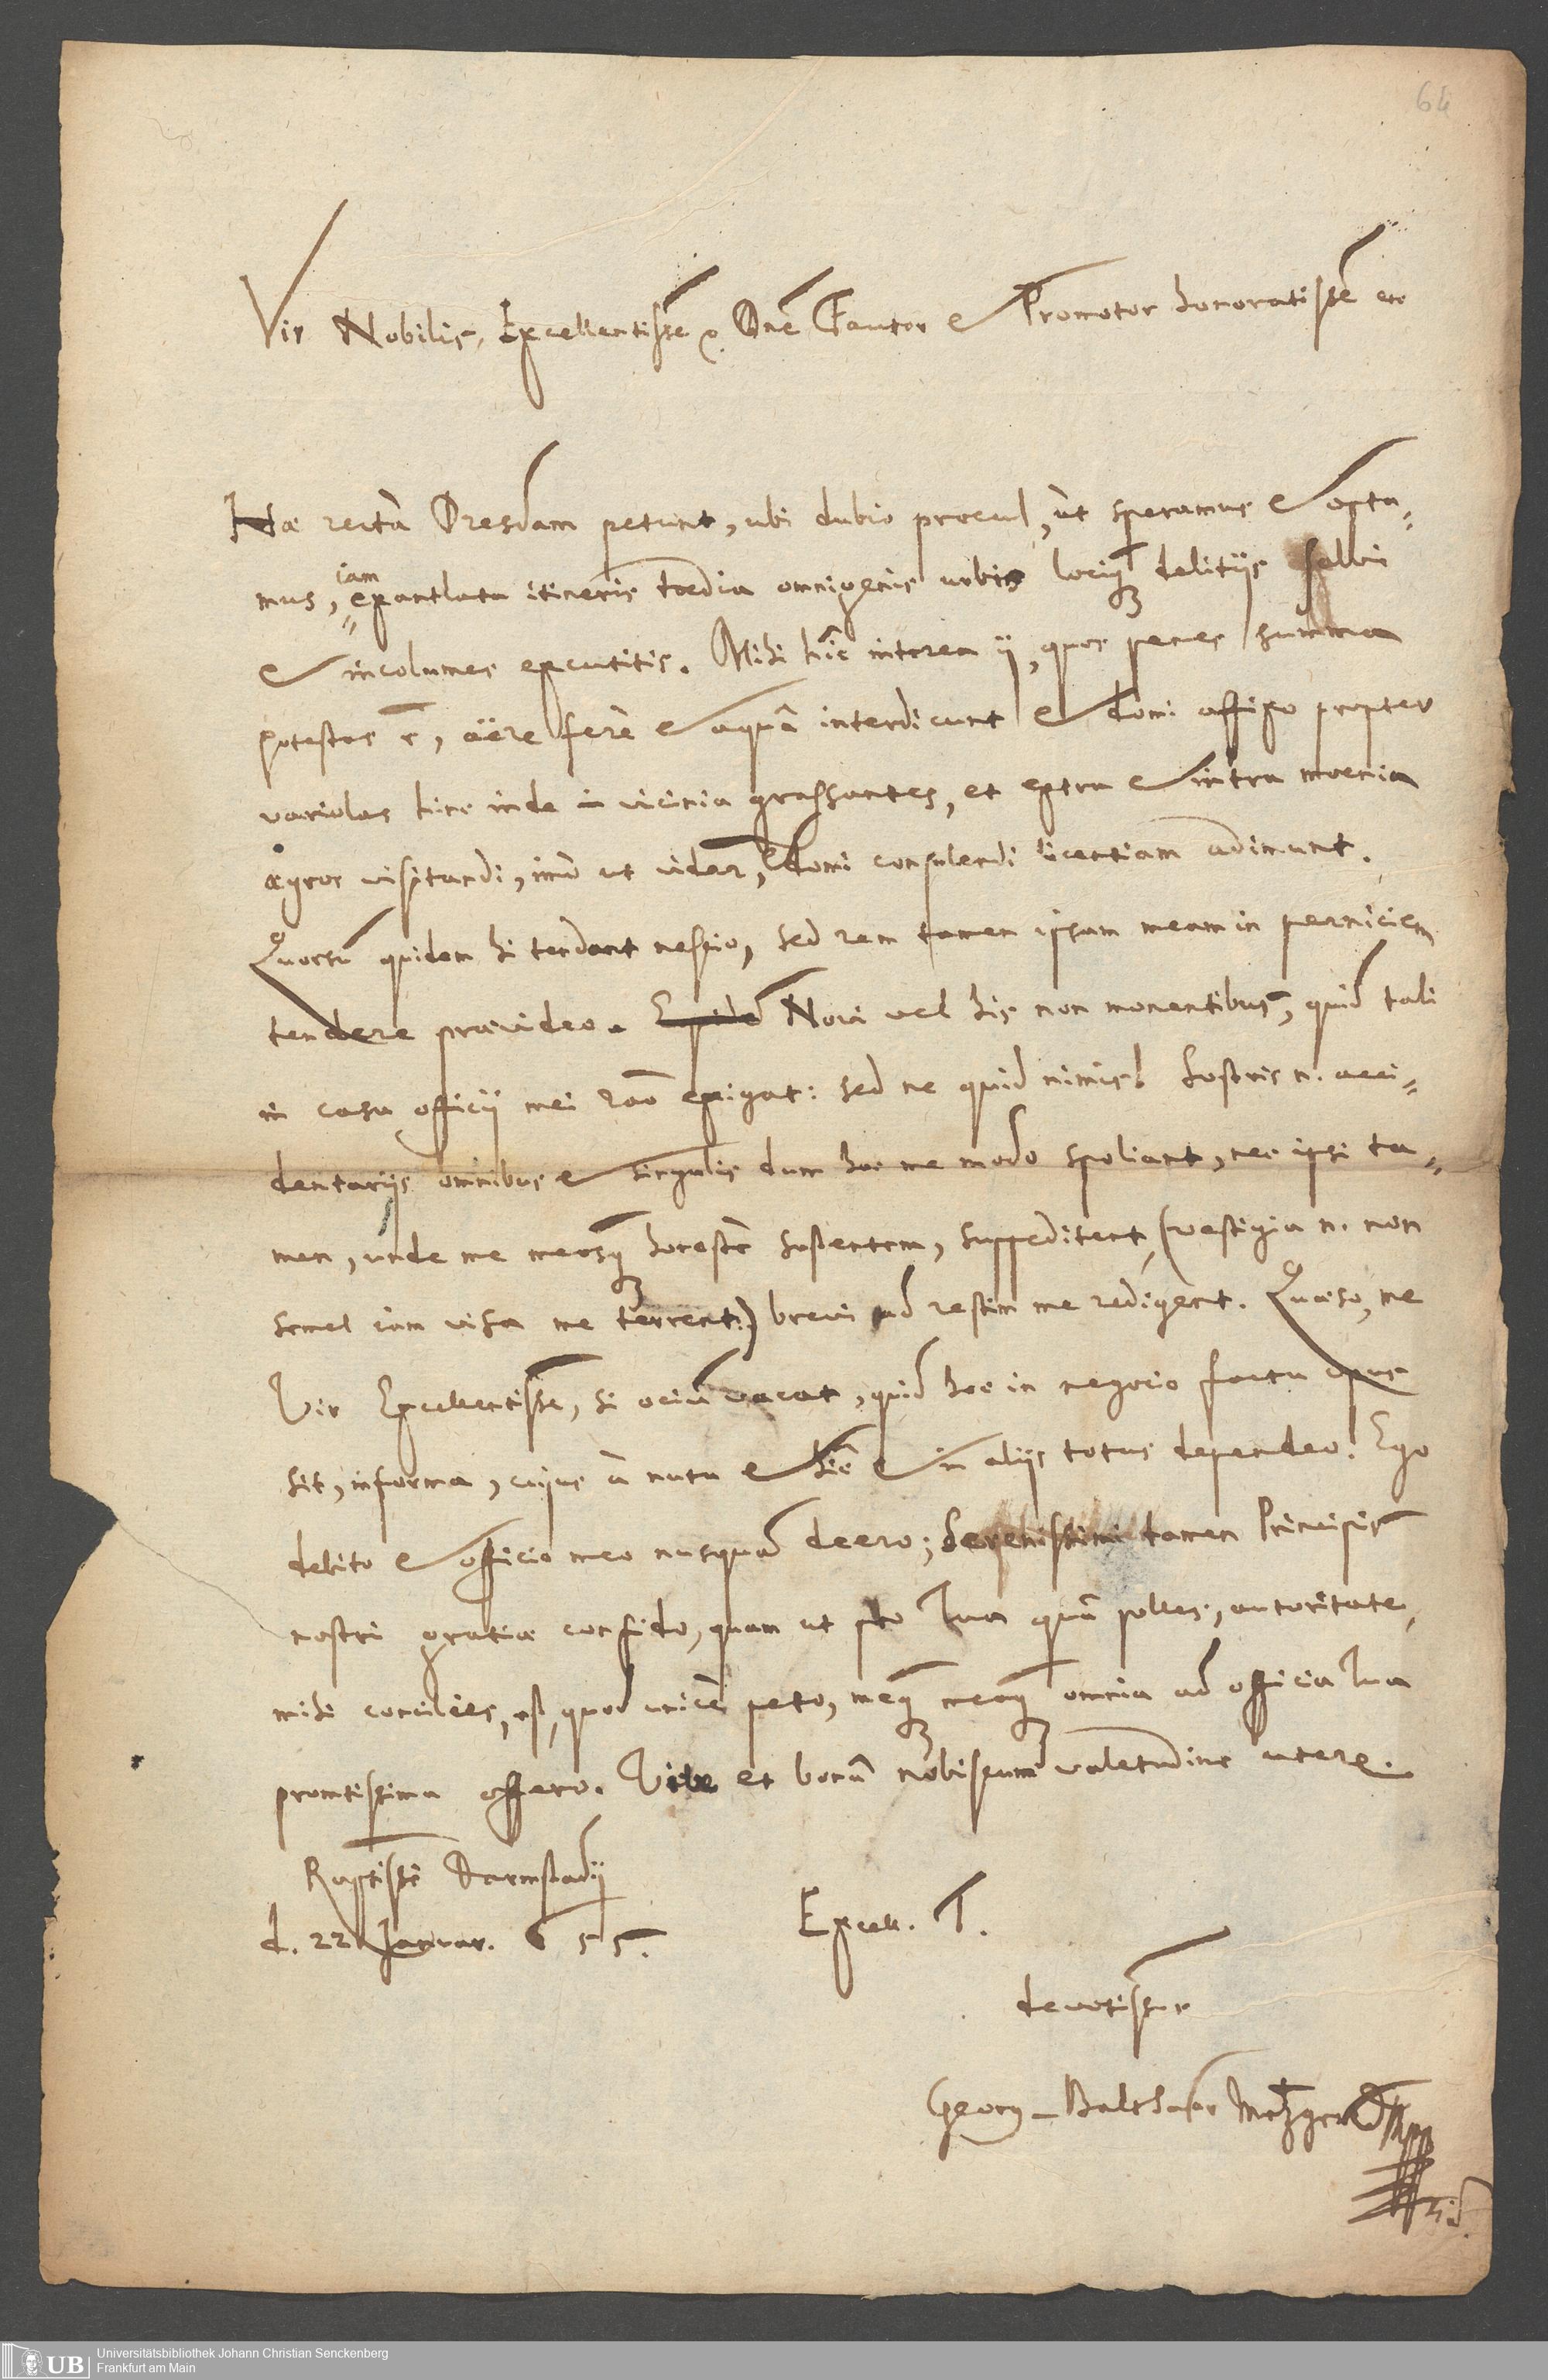 64
Vir Nobilis, Excellentissē &. Dnē Fautor & Promotor honoratissē etc
Hæ rectà Dresdam petunt, ubi dubio procul, ut speramus & opta-
mus, iam exantlata itineris tædia omnigenis urbis lociq; delitiis salvi
& incolumes excutitis. Mihi hîc interea ii, quos penes summa
potestas ē, äëre ferè & aquâ interdicunt & domi affixo propter
variolas hinc inde in vicinia grassantes, et extra & intra moenia
ægros visitandi, imò ut videor, & domi consulendi licentiam adimunt.
Quorsū quidem hi tendant nescio, sed rem tamen ipsam meam in perniciem
tendere prævideo. Novi vel his non monentibus, quid tali
in casu officij mei rāo exigat: sed ne quid nimis! Sostris n. acci-
dentarijs omnibus & singulis dum hoc me modo spoliant, nec ipsi ta-
men, unde me meosq; honestè sustentem, suppeditent, (vestigia n. non
semel iam visa me terrent:) brevi ad restim me redigent. Quæso, me
Vir Excellentissē, si ociū vacat, quid hoc in negocio factu opus
sit, informa, cujus à nutu & hîc & in alijs totus dependeo. Ego
debito & officio meo nusquā deero; Serenissimi tamen Principis
nostri gratiæ confido, quam ut pro Tua quâ polles, autoritate,
mihi concilies, est, quod unicè peto, meq; meaq; omnia ad officia Tua
promtissima offero. Vive et bonâ nobiscum valetudine utere.
Raptissē Darmstadij
d. 22 Januar. 655.
Excell. T.
devotissimus
Georg-Balthasar Metzger D
Universitätsbibliothek Johann Christian Senckenberg
Frankfurt am Main
UB